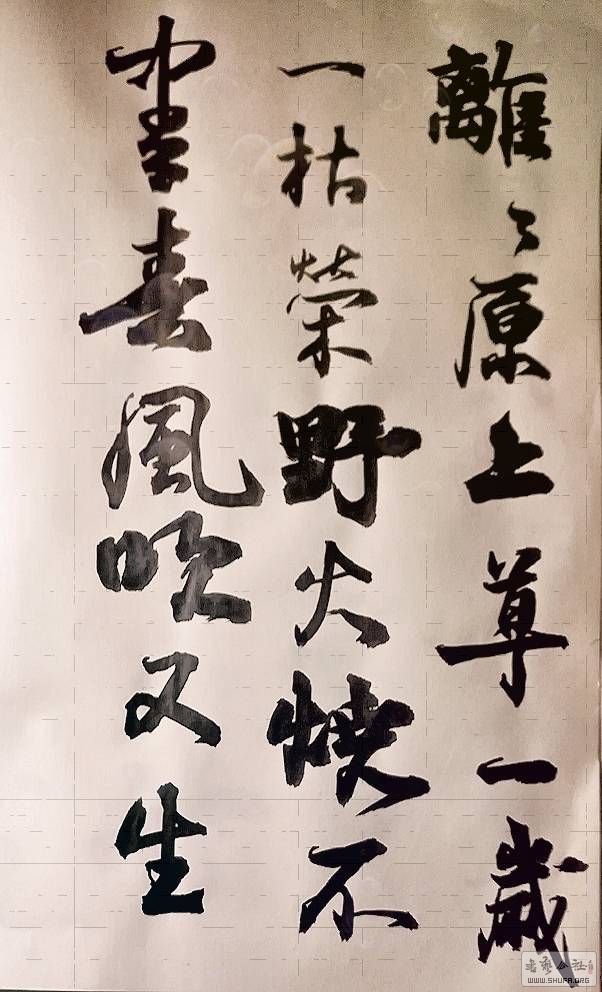 離〻原上草一歲
一枯榮野火燒不
盡春風吹又生
書藝公社
WWW.SHUFA.ORG